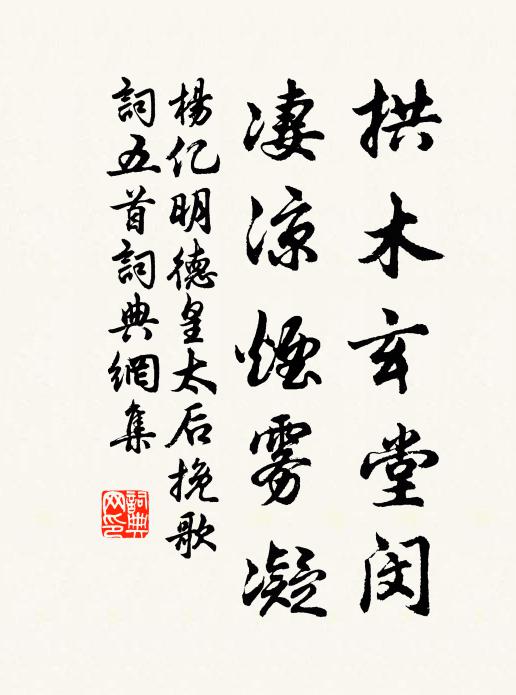 拱木玄堂閔
凄涼煙雾凝
楊亿明德皇太后挽歌
詞五首詞典網集
詞典网印